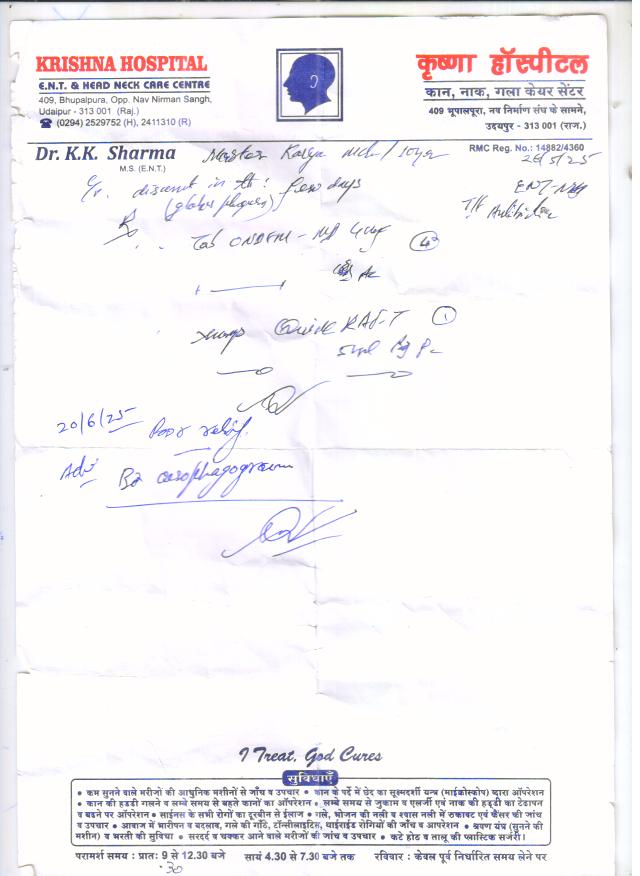 KRISHNA HOSPITAL
E.N.T. & HEAD NECK CARE CENTRE
409, Bhupalpura, Opp. Nav Nirman Sangh,
Udaipur - 313 001 (Raj.)
(0294) 2529752 (H), 2411310 (R)
कृष्णा हॉस्पीटल
कान, नाक, गला केयर सेंटर
409 भूपालपूरा, नव निर्माण संघ के सामने,
उदयपुर - 313 001 (राज.)
Dr. K.K. Sharma
M.S. (E.N.T.)
RMC Reg. No.: 14882/4360
Master
26/5/25
in th: few days
ENT-
Tab
Quick RAF-T 1
5ml
20/6/25 Poor relief.
Adv Ba oesophagogram
I Treat, God Cures
सुविधाएँ
• कम सुनने वाले मरीजों की आधुनिक मशीनों से जाँच व उपचार • कान के पर्दे में छेद का सूक्ष्मदर्शी यन्त्र (माईक्रोस्कोप) द्वारा ऑपरेशन
• कान की हडडी गलने व लम्बे समय से बहते कानों का ऑपरेशन • लम्बे समय से जुकाम व एलर्जी एवं नाक की हड्डी का टेढापन
व बढने पर ऑपरेशन • साईनस के सभी रोगों का दूरबीन से ईलाज • गले, भोजन की नली व श्वास नली में रुकावट एवं कैंसर की जांच
व उपचार • आवाज में भारीपन व बदलाव, गले की गाँठे, टॉन्सीलाइटिस, थाईराईड रोगियों की जाँच व आपरेशन • श्रवण यंत्र (सुनने की
मशीन) व भरती की सुविधा • सरदर्द व चक्कर आने वाले मरीजों की जांच व उपचार • कटे होठ व तालू की प्लास्टिक सर्जरी।
परामर्श समय : प्रातः 9 से 12.30 बजे सायं 4.30 से 7.30 बजे तक रविवार : केवल पूर्व निर्धारित समय लेने पर